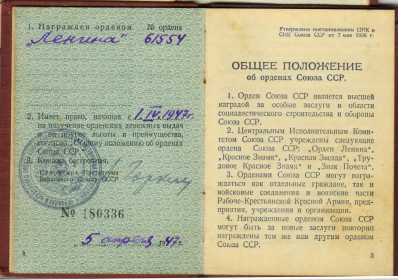 1. Награжден орденом № ордена
"Ленина" 61554
2. Имеет право, начиная с 1.IV.1947г.
на получение орденских денежных выдач
и на другие льготы и преимущества,
согласно Общему положению об орденах
Союза ССР.
3. Книжка бессрочная.
Секретарь Президиума
Верховного Совета СССР
№ 180336
5 апреля 1947г.
Утверждено постановлением ЦИК и
СНК Союза ССР от 7 мая 1936 г.
ОБЩЕЕ ПОЛОЖЕНИЕ
об орденах Союза ССР.
1. Орден Союза ССР является высшей
наградой за особые заслуги в области
социалистического строительства и обороны
Союза ССР.
2. Центральным Исполнительным Коми-
тетом Союза ССР учреждены следующие
ордена Союза ССР: „Орден Ленина",
„Красное Знамя", „Красная Звезда", „Трудо-
вое Красное Знамя" и „Знак Почета".
3. Орденами Союза ССР могут на-
граждаться как отдельные граждане, так и
войсковые соединения и воинские части
Рабоче-Крестьянской Красной Армии, пред-
приятия, учреждения и организации.
4. Награжденные орденом Союза ССР
могут быть за новые заслуги повторно
награждены тем же или другим орденом
Союза ССР.
3